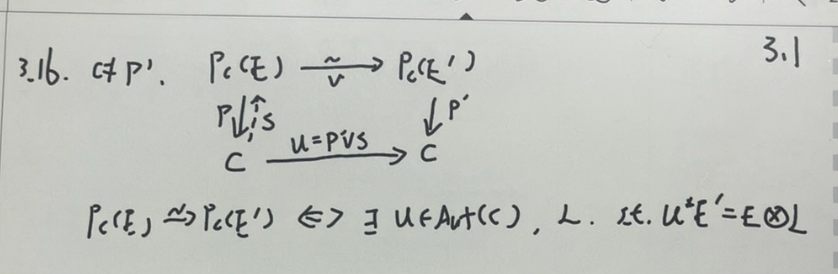 3.16. C≠P'. P_C(E) ~→ v P_C(E') 3.1
P↓↑S ↓P'
C u=P'vS → C
P_C(E) ~→ P_C(E') <=> ∃ u∈Aut(C), L. s.t. u*E'=E⊗L